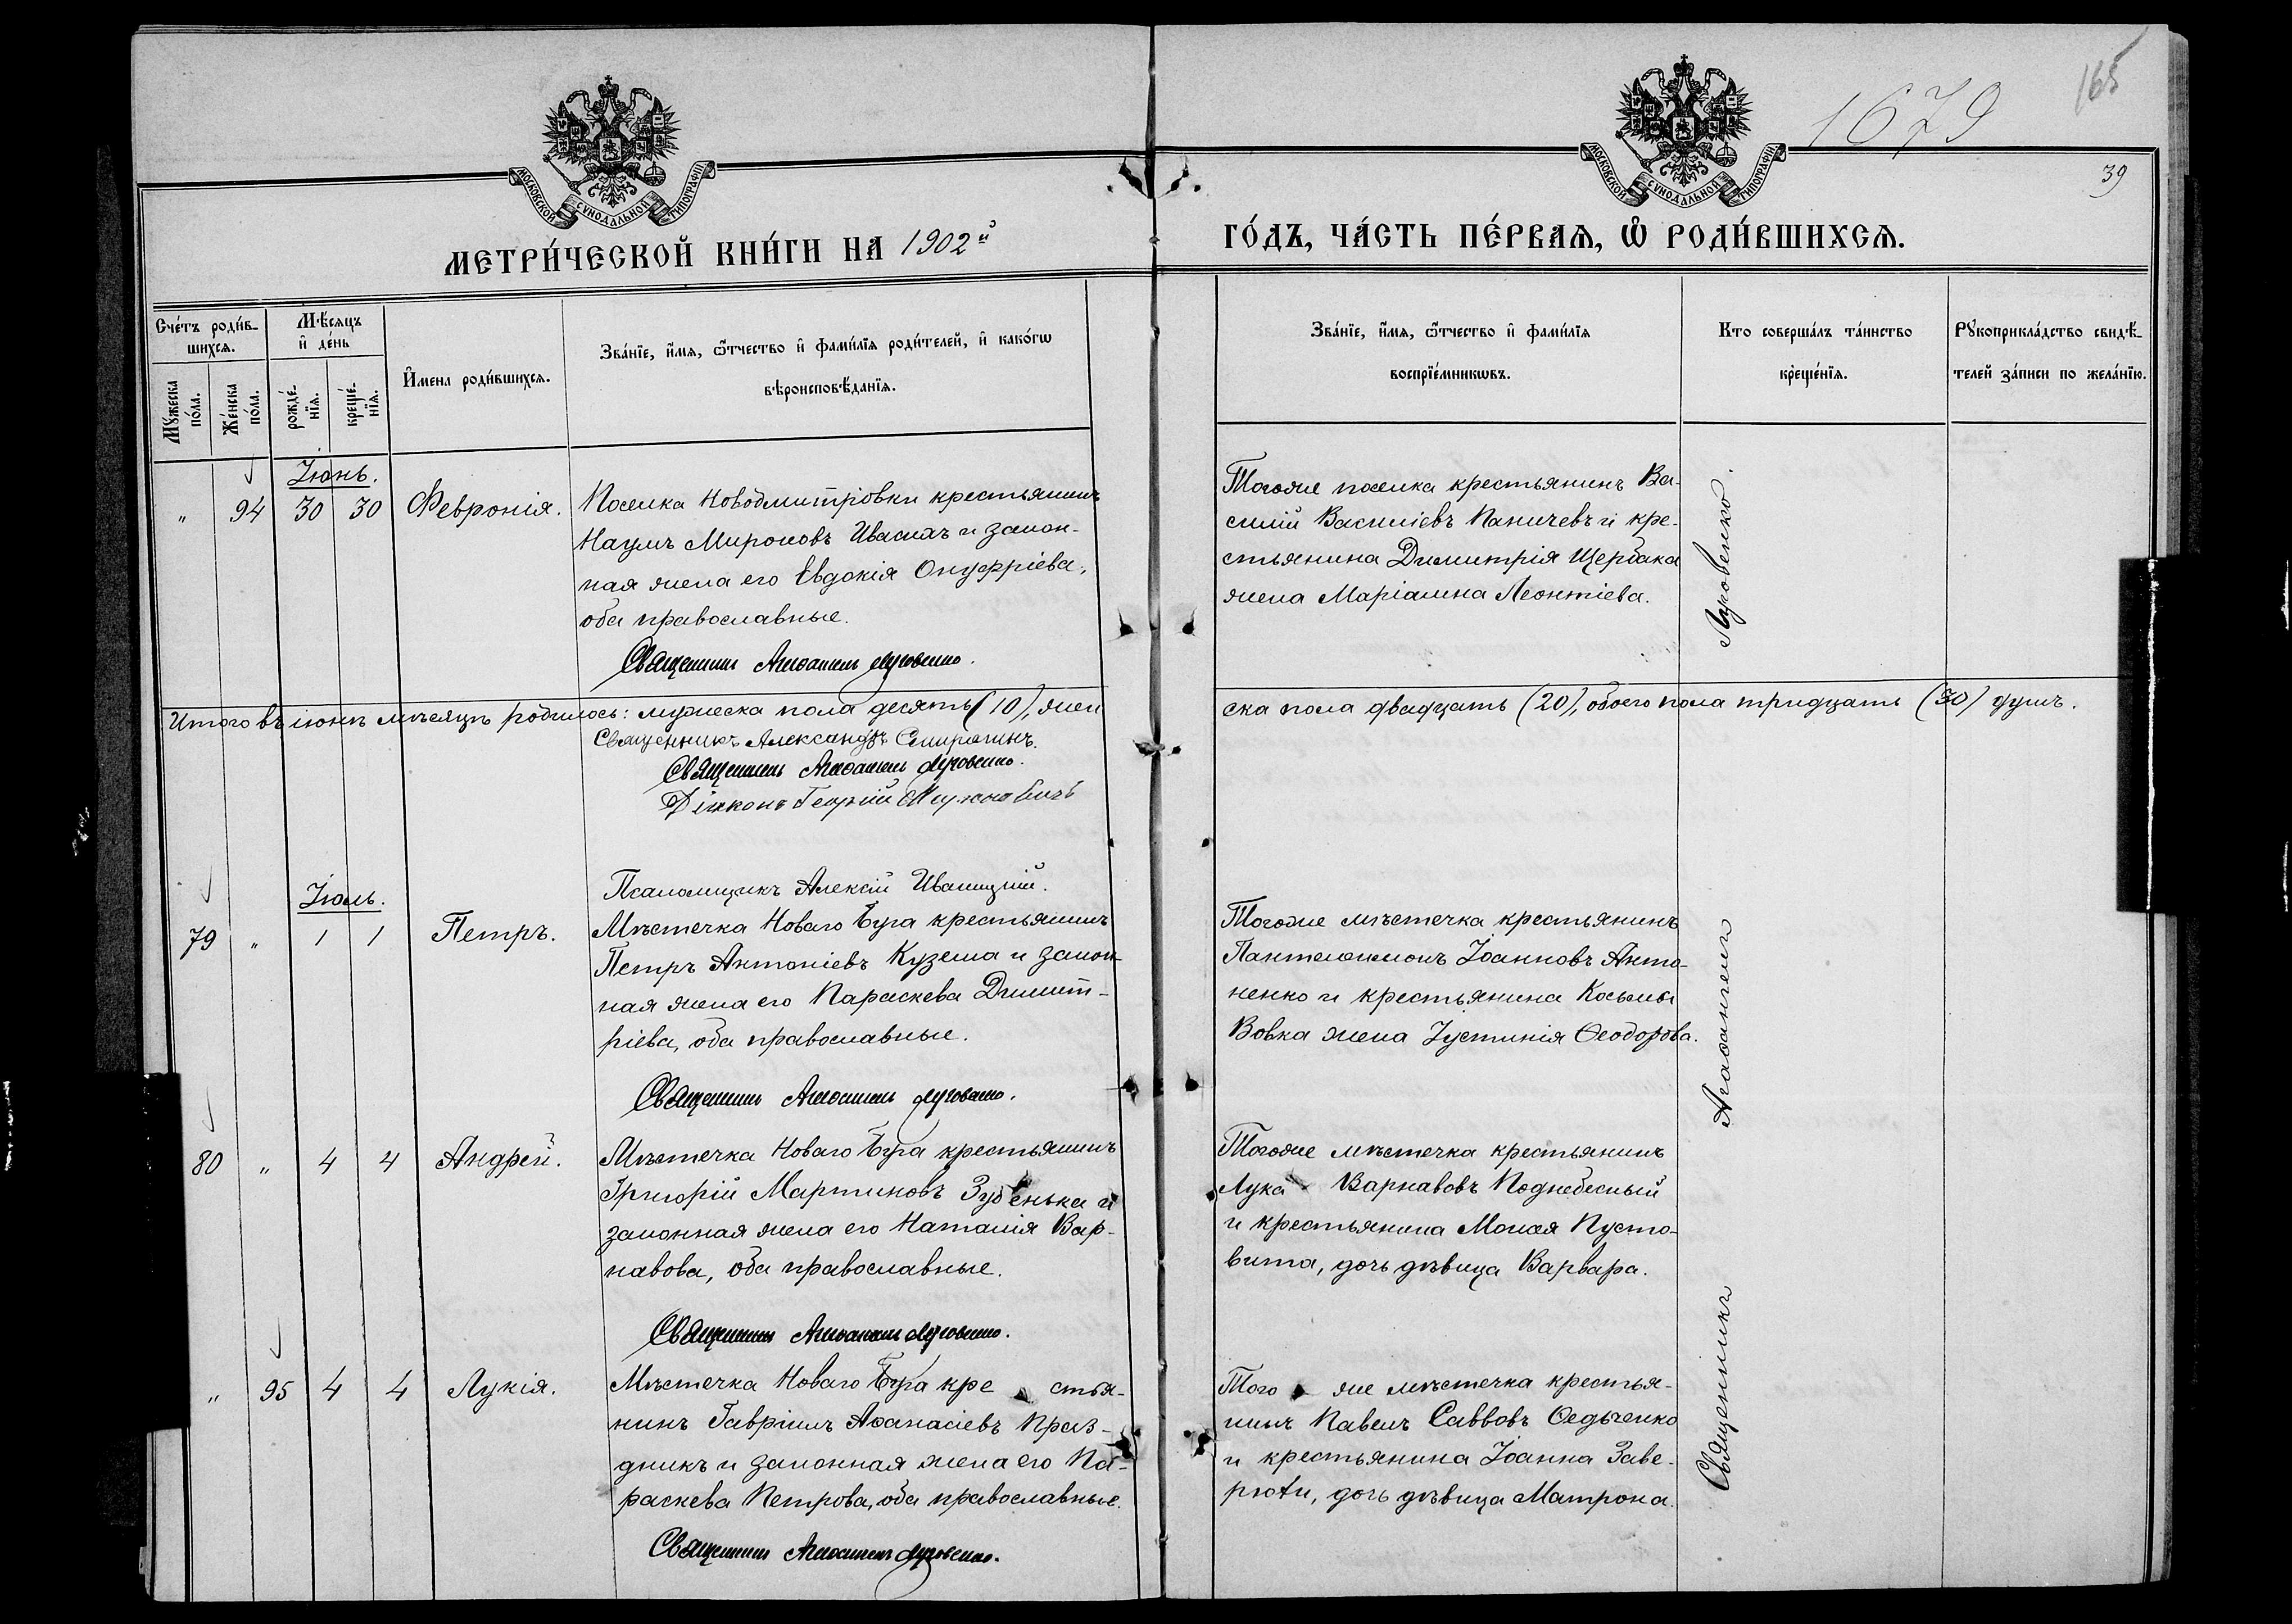 1679
165
39
МОСКОВСКОЙ СѴНОДАЛЬНОЙ ТИПОГРАФІИ
МОСКОВСКОЙ СѴНОДАЛЬНОЙ ТИПОГРАФІИ
МЕТРИ́ЧЕСКОЙ КНИ́ГИ НА 1902й
ГО́ДЪ, ЧА́СТЬ ПЕ́РВАѦ, Ѡ РОДИ́ВШИХСѦ.
Сче́тъ роди́в-
шихсѧ.
Мѣ́сѧцъ
и҆ де́нь
Мꙋ́жеска по́ла.
Же́нска по́ла.
рожде́-нїѧ.
креще́-нїѧ.
И҆мена̀ роди́вшихсѧ.
Зва́нїе, и҆́мѧ, ѻ҆́тчество и҆ фами́лїѧ роди́телей, и҆ како́гѡ
вѣроисповѣ́данїѧ.
Зва́нїе, и҆́мѧ, ѻ҆́тчество и҆ фами́лїѧ
воспрїе́мникѡвъ.
Кто̀ соверша́лъ та́инство
креще́нїѧ.
Рꙋкоприкла́дство свидѣ́-
телей за́писи по жела́нїю.
Іюнь.
" 94 30 30 Февронія.
Поселка Новодмитріовки крестьянинъ
Наумъ Мироновъ Ивасикъ и закон-
ная жена его Евдокія Онуфріева,
оба православные.
Священникъ Агаѳангелъ Луговенко.
Тогоже поселка крестьянинъ Ва-
силій Василіевъ Паничевъ и кре-
стьянина Димитрія Щербака
жена Маріамна Леонтіева.
Итого въ іюнѣ мѣсяцѣ родилось: мужеска пола десять (10), жен
ска пола двадцать (20), обоего пола тридцать (30) душъ.
Священникъ Александръ Сыпрагинъ.
Священникъ Агаѳангелъ Луговенко.
Діаконъ Георгій
Псаломщикъ Алексій Иваницкій.
Іюль.
79 " 1 1 Петръ.
Мѣстечка Новаго Буга крестьянинъ
Петръ Антоніевъ Кузема и закон-
ная жена его Параскева Димит-
ріева, оба православные.
Священникъ Агаѳангелъ Луговенко.
Тогоже мѣстечка крестьянинъ
Пантелеимонъ Іоанновъ Анто-
ненко и крестьянина Косьмы
Вовка жена Іустинія Ѳеодорова.
80 " 4 4 Андрей.
Мѣстечка Новаго Буга крестьянинъ
Григорій Мартиновъ Зубенька и
законная жена его Наталія Вар-
навова, оба православные.
Священникъ Агаѳангелъ Луговенко.
Тогоже мѣстечка крестьянинъ
Лука Варнавовъ Поднебесный
и крестьянина Моисея Пусто-
вита, дочь дѣвица Варвара.
" 95 4 4 Лукія.
Мѣстечка Новаго Буга кре стья-
нинъ Гавріилъ Аѳанасіевъ Праз-
дникъ и законная жена его Па-
раскева Петрова, оба православные.
Священникъ Агаѳангелъ Луговенко.
Того же мѣстечка крестья-
нинъ Павелъ Саввовъ Ѳедьченко
и крестьянина Іоанна Заве-
рюхи, дочь дѣвица Матрона.
Священникъ Агаѳангелъ Луговенко.